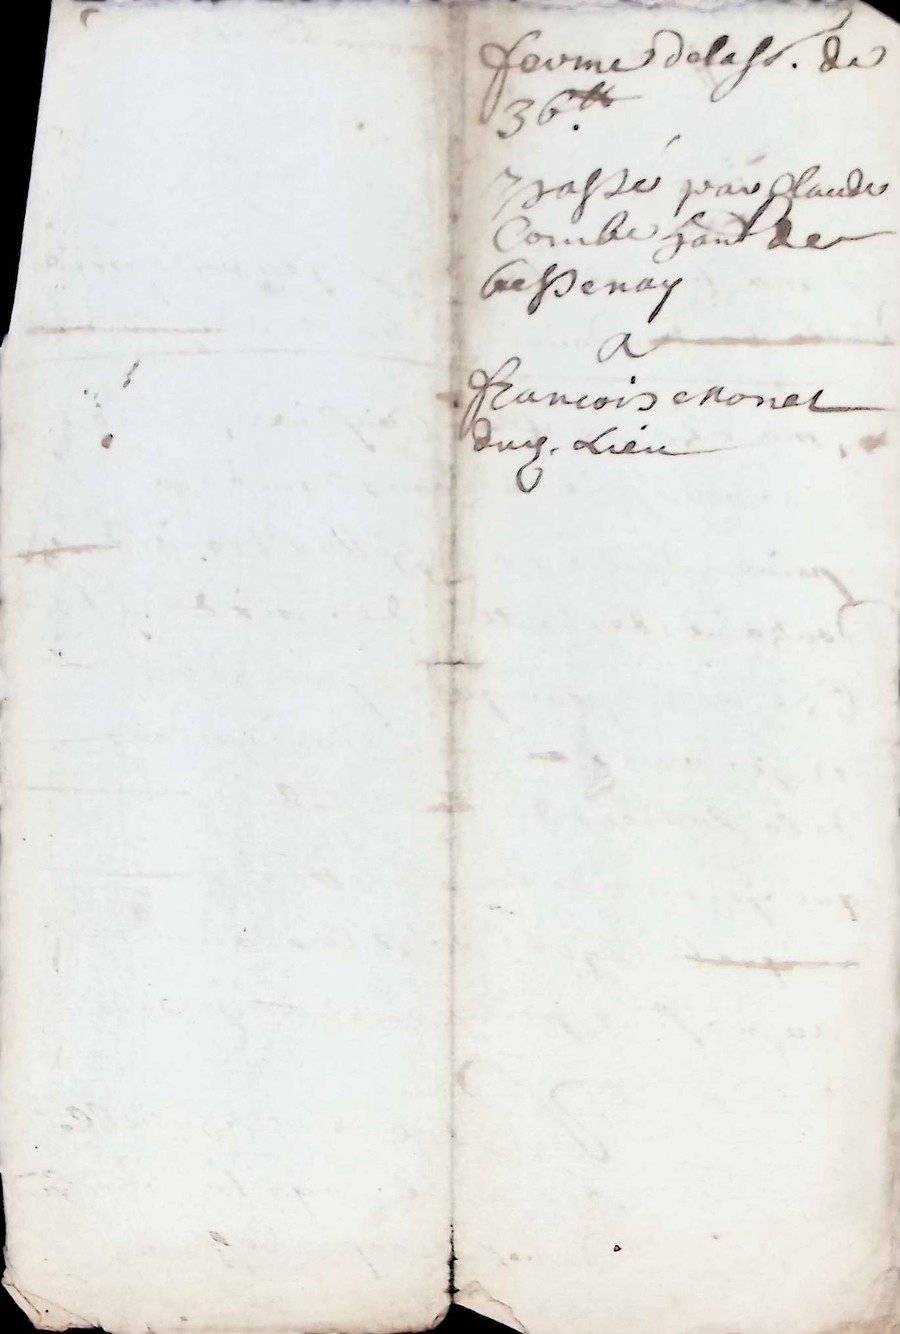 ferme delass. de
36 ₶
passé par Claude
Combe de
bessenay
a
francois monet
dud. Lieu